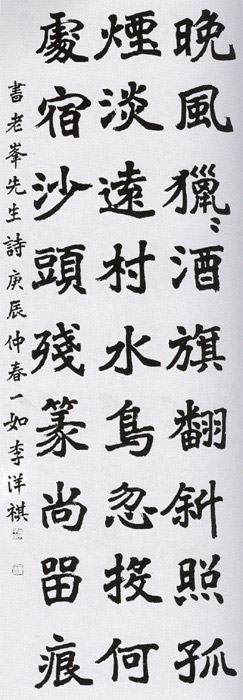 晚風獵〻酒旗翻斜照孤
煙淡遠村水鳥忽投何
處宿沙頭殘篆尚留痕
書老峯先生詩庚辰仲春一如李洋祺